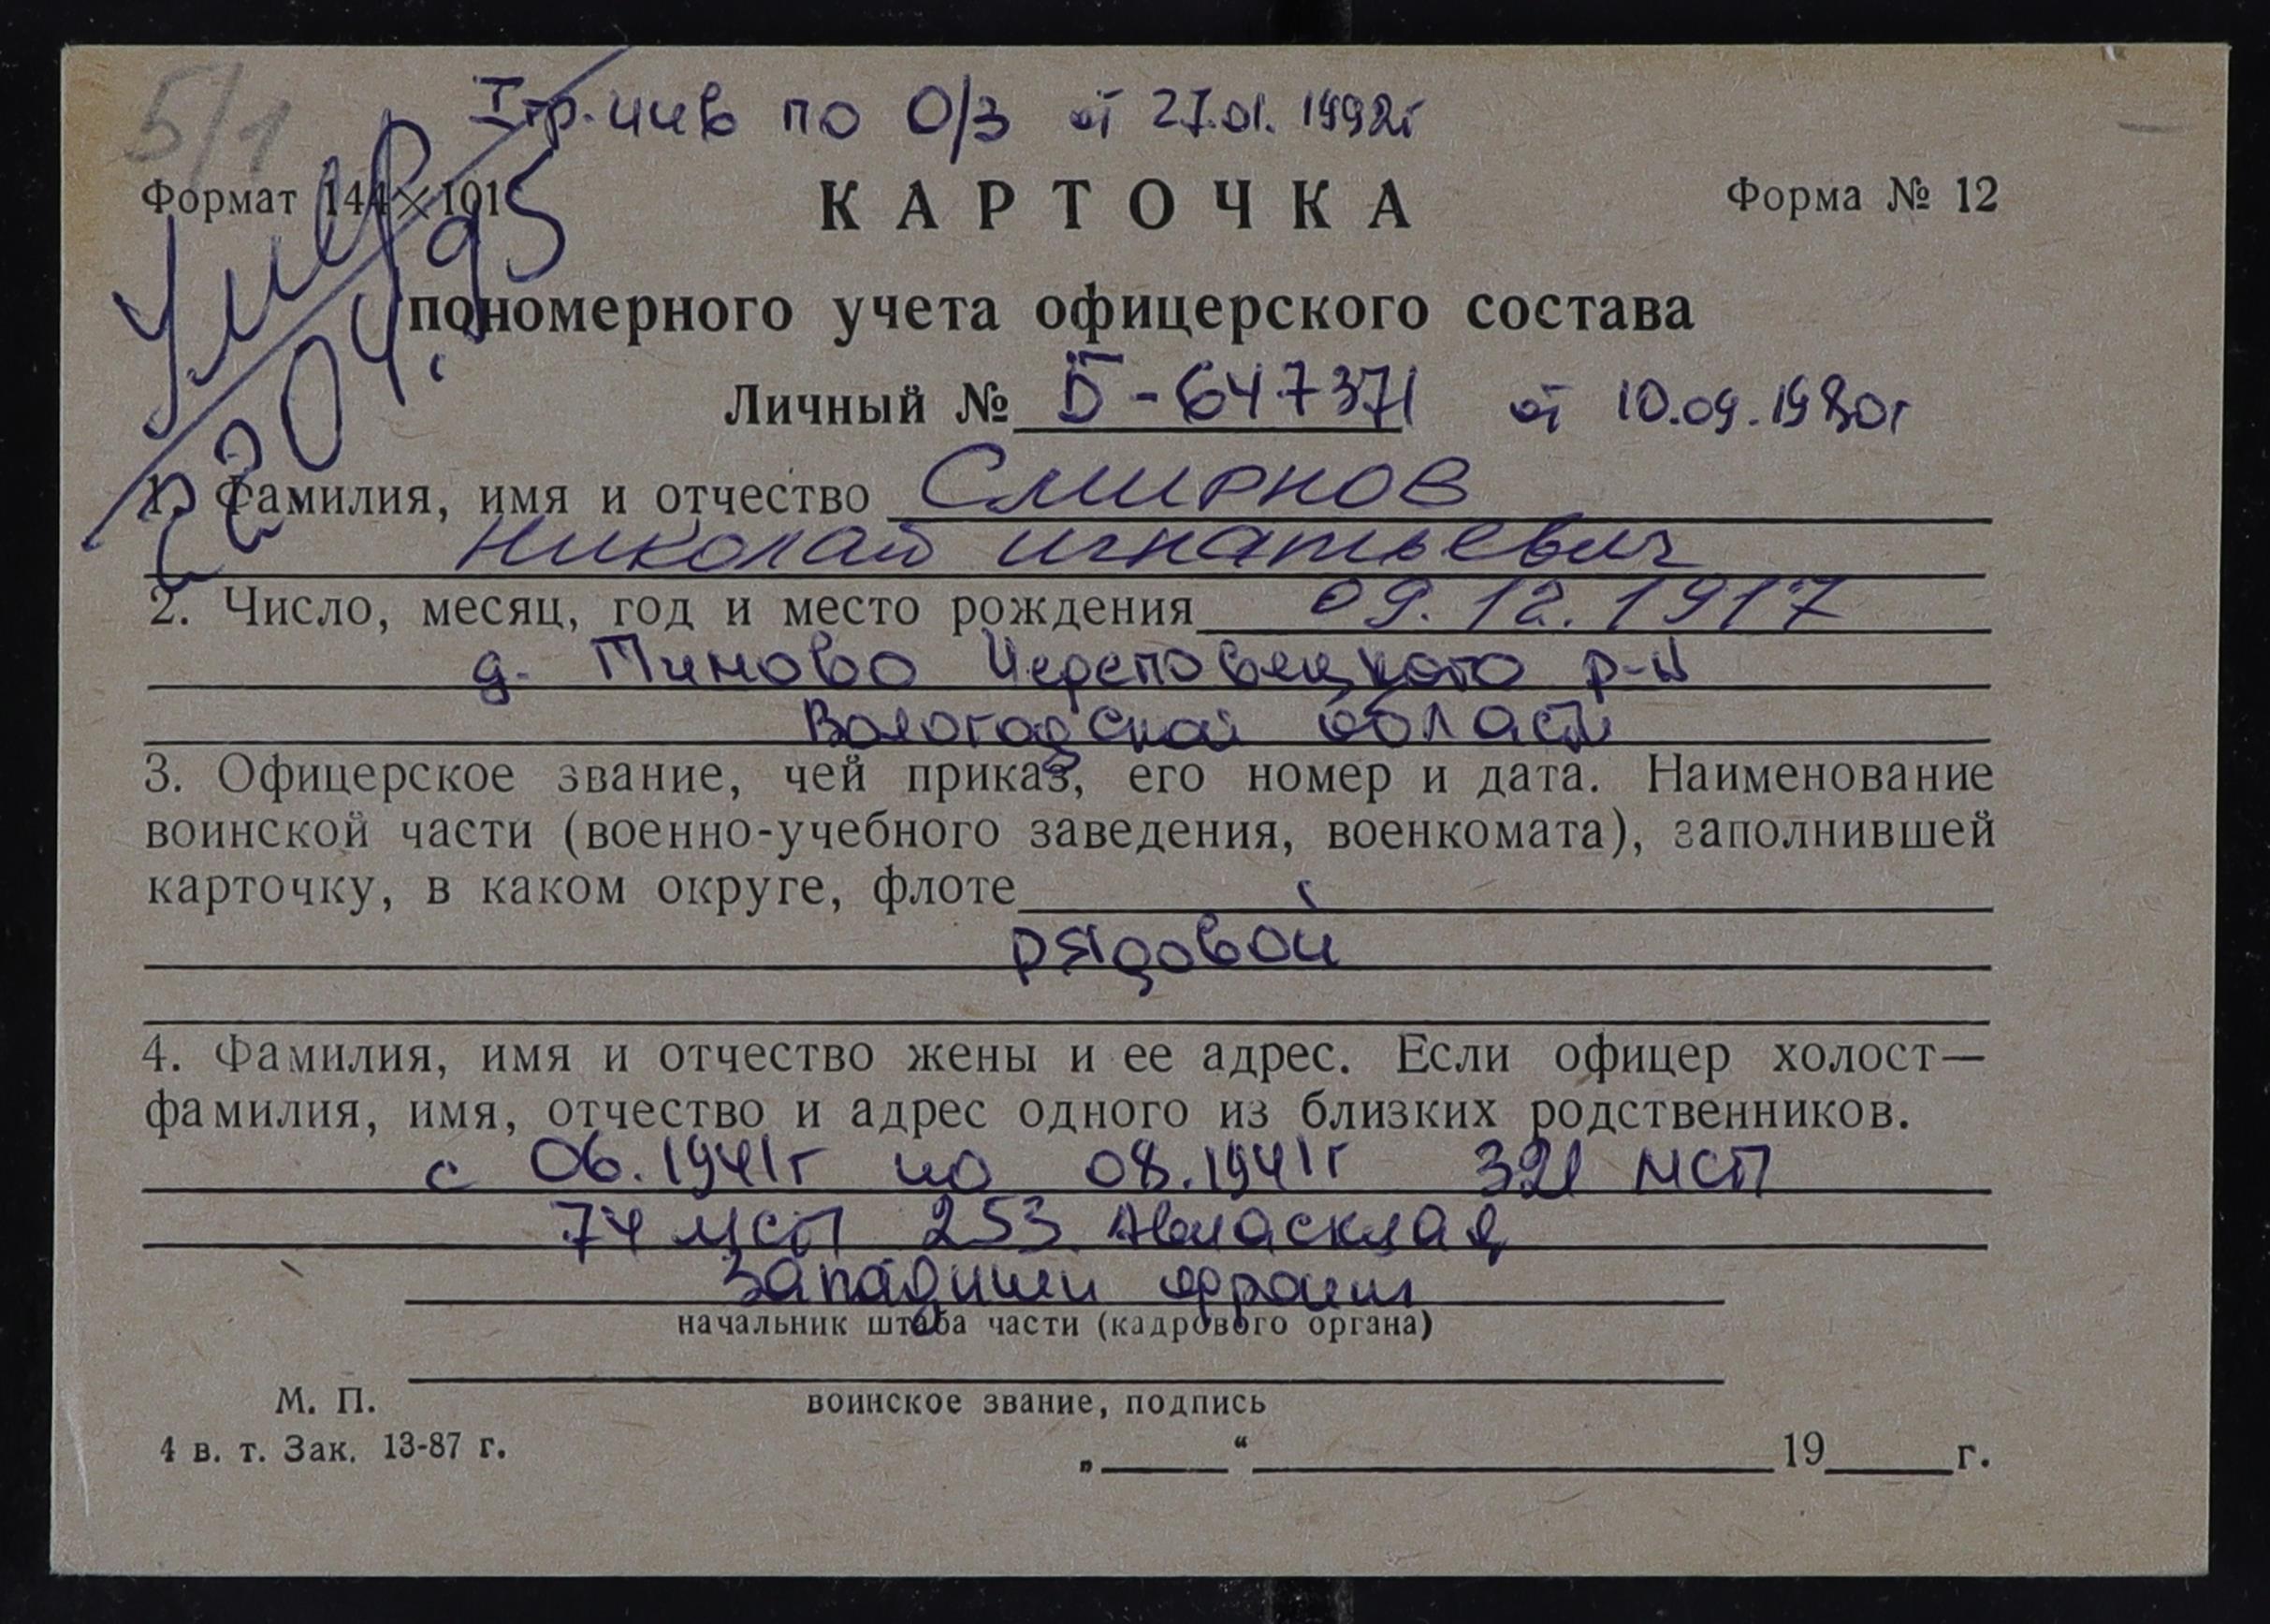 5/1
I гр. инв по О/З от 27.01.1992г
Умер 22.04.95
Формат 144×101
КАРТОЧКА
Форма № 12
пономерного учета офицерского состава
Личный № Б-647371 от 10.09.1980г
1. Фамилия, имя и отчество Смирнов
Николай Игнатьевич
2. Число, месяц, год и место рождения 09.12.1917
д. Пиново Череповецкого р-н
Вологодской области
3. Офицерское звание, чей приказ, его номер и дата. Наименование
воинской части (военно-учебного заведения, военкомата), заполнившей
карточку, в каком округе, флоте
рядовой
4. Фамилия, имя и отчество жены и ее адрес. Если офицер холост—
фамилия, имя, отчество и адрес одного из близких родственников.
с 06.1941г по 08.1941г 321 МСП
74 мсп 253 Авиасклад
Западный фронт
начальник штаба части (кадрового органа)
воинское звание, подпись
М. П.
4 в. т. Зак. 13-87 г.
„ “ 19 г.